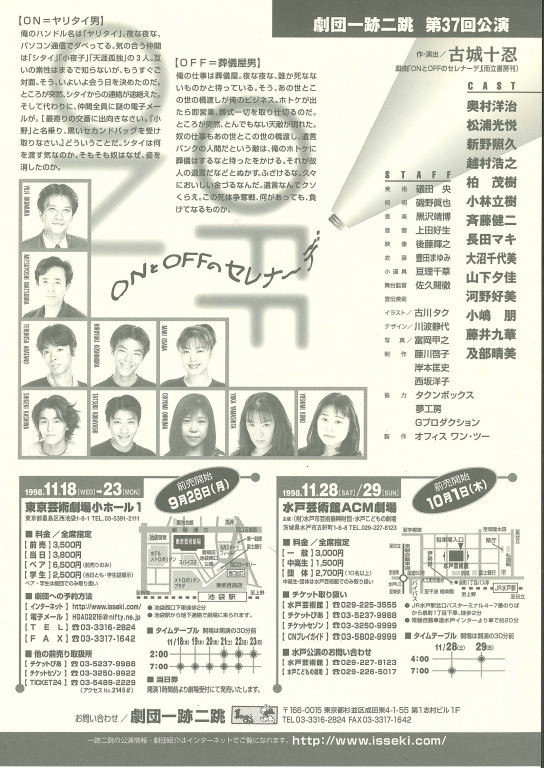 劇団一跡二跳 第37回公演
作・演出/古城十忍
戯曲『ONとOFFのセレナーデ』[而立書房刊]
【ON＝ヤリタイ男】
俺のハンドル名は「ヤリタイ」。夜な夜な、
パソコン通信でダベってる。気の合う仲間
は「シタイ」「小夜子」「天涯孤独」の3人。互
いの素性はまるで知らないが、もうすぐご
対面。そう、いよいよ会う日を決めたのだ。
ところが突然、シタイからの連絡が途絶えた。
そして代わりに、仲間全員に謎の電子メー
ルが。「最寄りの交番に出向きなさい。『小
野』と名乗り、黒いセカンドバッグを受け
取りなさい。」どういうことだ。シタイは何
を渡す気なのか。そもそも奴はなぜ、姿を
消したのか。
【OFF＝葬儀屋男】
俺の仕事は葬儀屋。夜な夜な、誰か死なな
いものかと待っている。そう、あの世とこ
の世の橋渡しが俺のビジネス。ホトケが出
たら即営業、葬式一切を取り仕切るのだ。
ところが突然、とんでもない天敵が現れた。
奴の仕事もあの世とこの世の橋渡し。遺言
バンクの人間だという敵は、俺のホトケに
葬儀はするなと待ったをかける。それが故
人の遺言だなどとぬかす。ふざけるな。久々
においしい金づるなんだ。遺言なんてクソ
くらえ。この死体争奪戦、何があっても、負
けてなるものか。
ONとOFFのセレナーデ
CAST
奥村洋治
松浦光悦
新野照久
越村浩之
柏 茂樹
小林立樹
斉藤健二
長田マキ
大沼千代美
山下夕佳
河野好美
小嶋 朋
藤井九華
及部晴美
STAFF
美術 礒田 央
照明 磯野眞也
音楽 黒沢靖博
音響 上田好生
映像 後藤輝之
衣装 豊田まゆみ
小道具 亘理千草
舞台監督 佐久間徹
宣伝美術
イラスト/古川タク
デザイン/川波静代
写真/富岡甲之
制作 藤川啓子
岸本匡史
西坂洋子
協力 タクンボックス
夢工房
Gプロダクション
製作 オフィス ワン・ツー
YOJI OKUMURA
MITSUYOSHI MATSUURA
TERUHISA NIINO
HIROYUKI KOSHIMURA
MAKI OSADA
SHIGEKI KASHIWA
TATSUKI KOBAYASHI
CHIYOMI OHNUMA
YUKA YAMASHITA
YOSHIMI KOHNO
前売開始
9月28日(月)
1998.11.18[WED]→23[MON]
東京芸術劇場小ホール1
東京都豊島区西池袋1-8-1 TEL.03-5391-2111
■ 料金／全席指定
【前売】3,500円
【当日】3,800円
【ペア】6,500円(前売りのみ)
【学生】2,500円(当日とも・学生証提示)
ペア・学生は劇団でのみ取り扱い
■ 劇団への予約方法
【インターネット】http://www.isseki.com/
【電子メール】HGA02216@nifty.ne.jp
【TEL】☎03-3316-2824
【FAX】☎03-3317-1642
■ 他の前売り取扱所
【チケットぴあ】☎03-5237-9988
【チケットセゾン】☎03-3250-9922
【TICKET24】☎03-5489-2229
(アクセスNo.2145#)
東京芸術劇場
ホテル
メトロポリタン
メトロポリタン
プラザ
池袋駅
● 池袋西口下車徒歩2分
● 池袋駅から地下通路で劇場に来られます。
■ タイムテーブル 開場は開演の30分前
11/18(水) 19(木) 20(金) 21(土) 22(日) 23(月)
2:00
7:00
■ 当日券
開演1時間前より劇場受付にて発売いたします。
前売開始
10月1日(木)
1998.11.28[SAT]/29[SUN]
水戸芸術館ACM劇場
主催/(財)水戸市芸術振興財団・水戸こどもの劇場
茨城県水戸市五軒町1-6-8 TEL.029-227-8123
■ 料金／全席指定
【一般】3,000円
【中高生】1,500円
【団体】2,700円(10名以上)
中高生・団体は水戸芸術館でのみ取り扱い
■ チケット取り扱い
【水戸芸術館】☎029-225-3555
【チケットぴあ】☎03-5237-9988
【チケットセゾン】☎03-3250-9999
【CNプレイガイド】☎03-5802-9999
■ 水戸公演のお問い合わせ
【水戸芸術館】☎029-227-8123
【水戸こどもの劇場】☎029-226-5017
駐車場入口
JR水戸駅
● JR水戸駅北口バスターミナル4〜7番のりば
から乗車「泉町1丁目」下車、徒歩2分
● 常磐自動車道水戸インターより車で約20分
■ タイムテーブル 開場は開演の30分前
11/28(土) 29(日)
4:00
7:00
お問い合わせ／劇団一跡二跳
〒166-0015 東京都杉並区成田東4-1-55 第1志村ビル1F
TEL 03-3316-2824 FAX 03-3317-1642
一跡二跳の公演情報・劇団紹介はインターネットでご覧になれます。http://www.isseki.com/